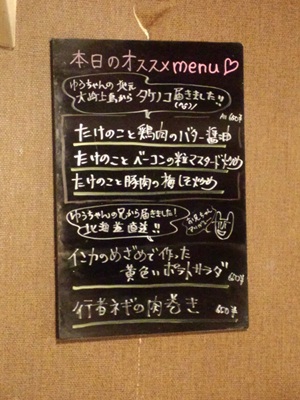 本日のオススメmenu♡
ゆうちゃんの地元
大崎上島から タケノコ届きました!!
(^o^)/
All 680円
たけのこと鶏肉のバター醤油
たけのことベーコンの粒マスタード炒め
たけのこと豚肉の梅しそ炒め
ゆうちゃんの兄から届きました!
北海道直送!!
お兄ちゃん
インカのめざめで作った
黄色いポテトサラダ
行者ネギの肉巻き